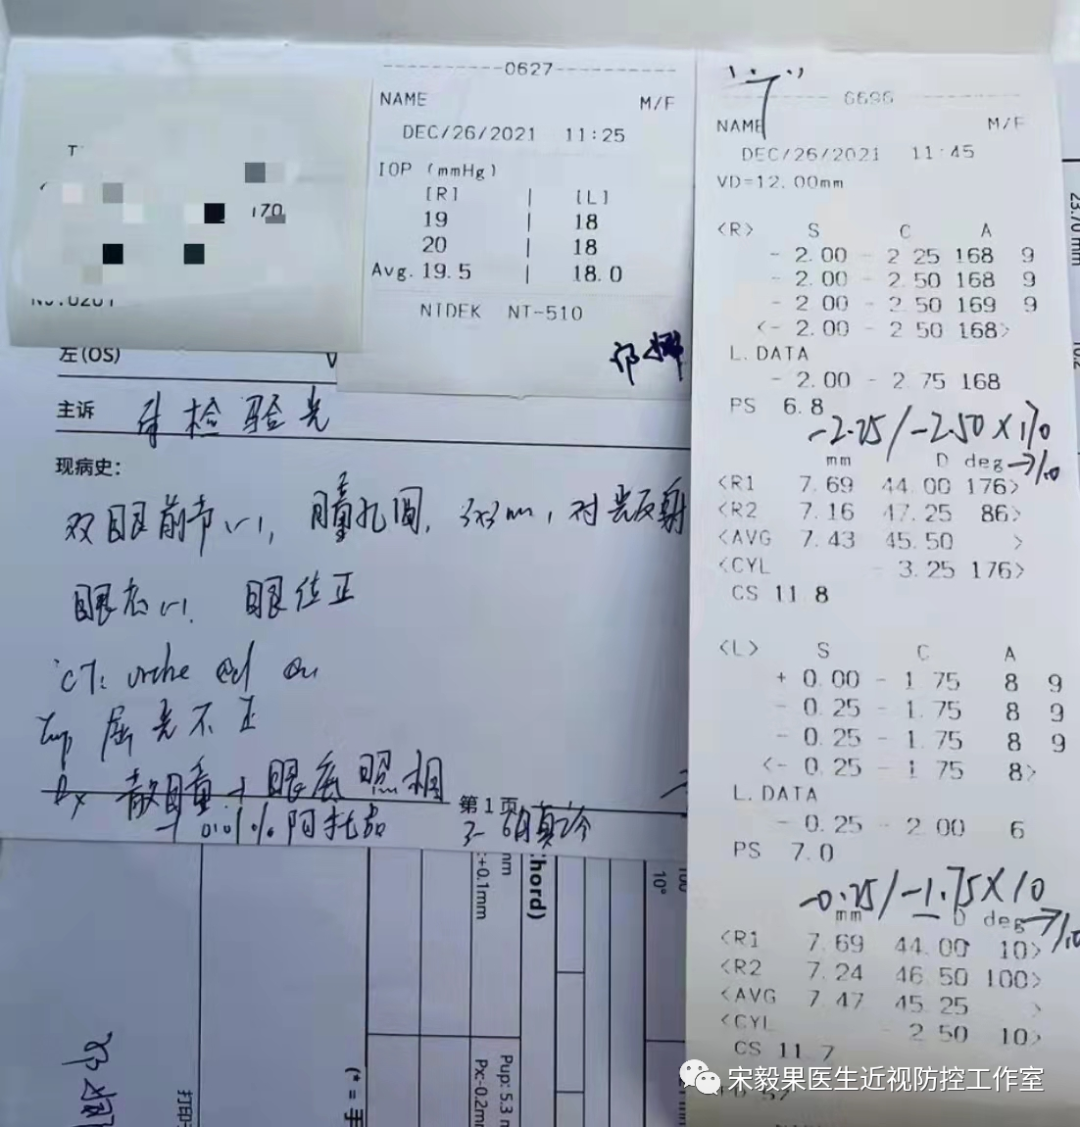 170
----------0627----------
NAME M/F
DEC/26/2021 11:25
IOP (mmHg)
[R] | [L]
19 | 18
20 | 18
Avg. 19.5 | 18.0
NIDEK NT-510
左(OS) V
主诉
检验光
现病史:
双眼前节(-), 瞳孔圆, 3x3mm, 对光反射
眼底(-), 眼位正
屈光不正
Rx 散瞳+眼底照相
0.01%阿托品
第1页
6696
NAME M/F
DEC/26/2021 11:45
VD=12.00mm
<R> S C A
- 2.00 - 2 25 168 9
- 2.00 - 2.50 168 9
- 2 00 - 2 50 169 9
<- 2.00 - 2 50 168>
L.DATA
- 2.00 - 2 75 168
PS 6.8
-2.25/-2.50X170
mm D deg→1.0
<R1 7.69 44.00 176>
<R2 7.16 47.25 86>
<AVG 7.43 45.50 >
<CYL - 3.25 176>
CS 11.8
<L> S C A
+ 0.00 - 1 75 8 9
- 0.25 - 1.75 8 9
- 0.25 - 1.75 8 9
<- 0.25 - 1 75 8>
L.DATA
- 0.25 - 2 00 6
PS 7.0
-0.25/-1.75X10
mm D deg→1.0
<R1 7.69 44.00 10>
<R2 7.24 46 50 100>
<AVG 7.47 45 25 >
<CYL 2 50 10>
CS 11.7
23.70 mm
:+0.1mm
nm
:hord)
10°
Pup: 5.3 m
Px:-0.2mm
(* = 手
打印
宋毅果医生近视防控工作室